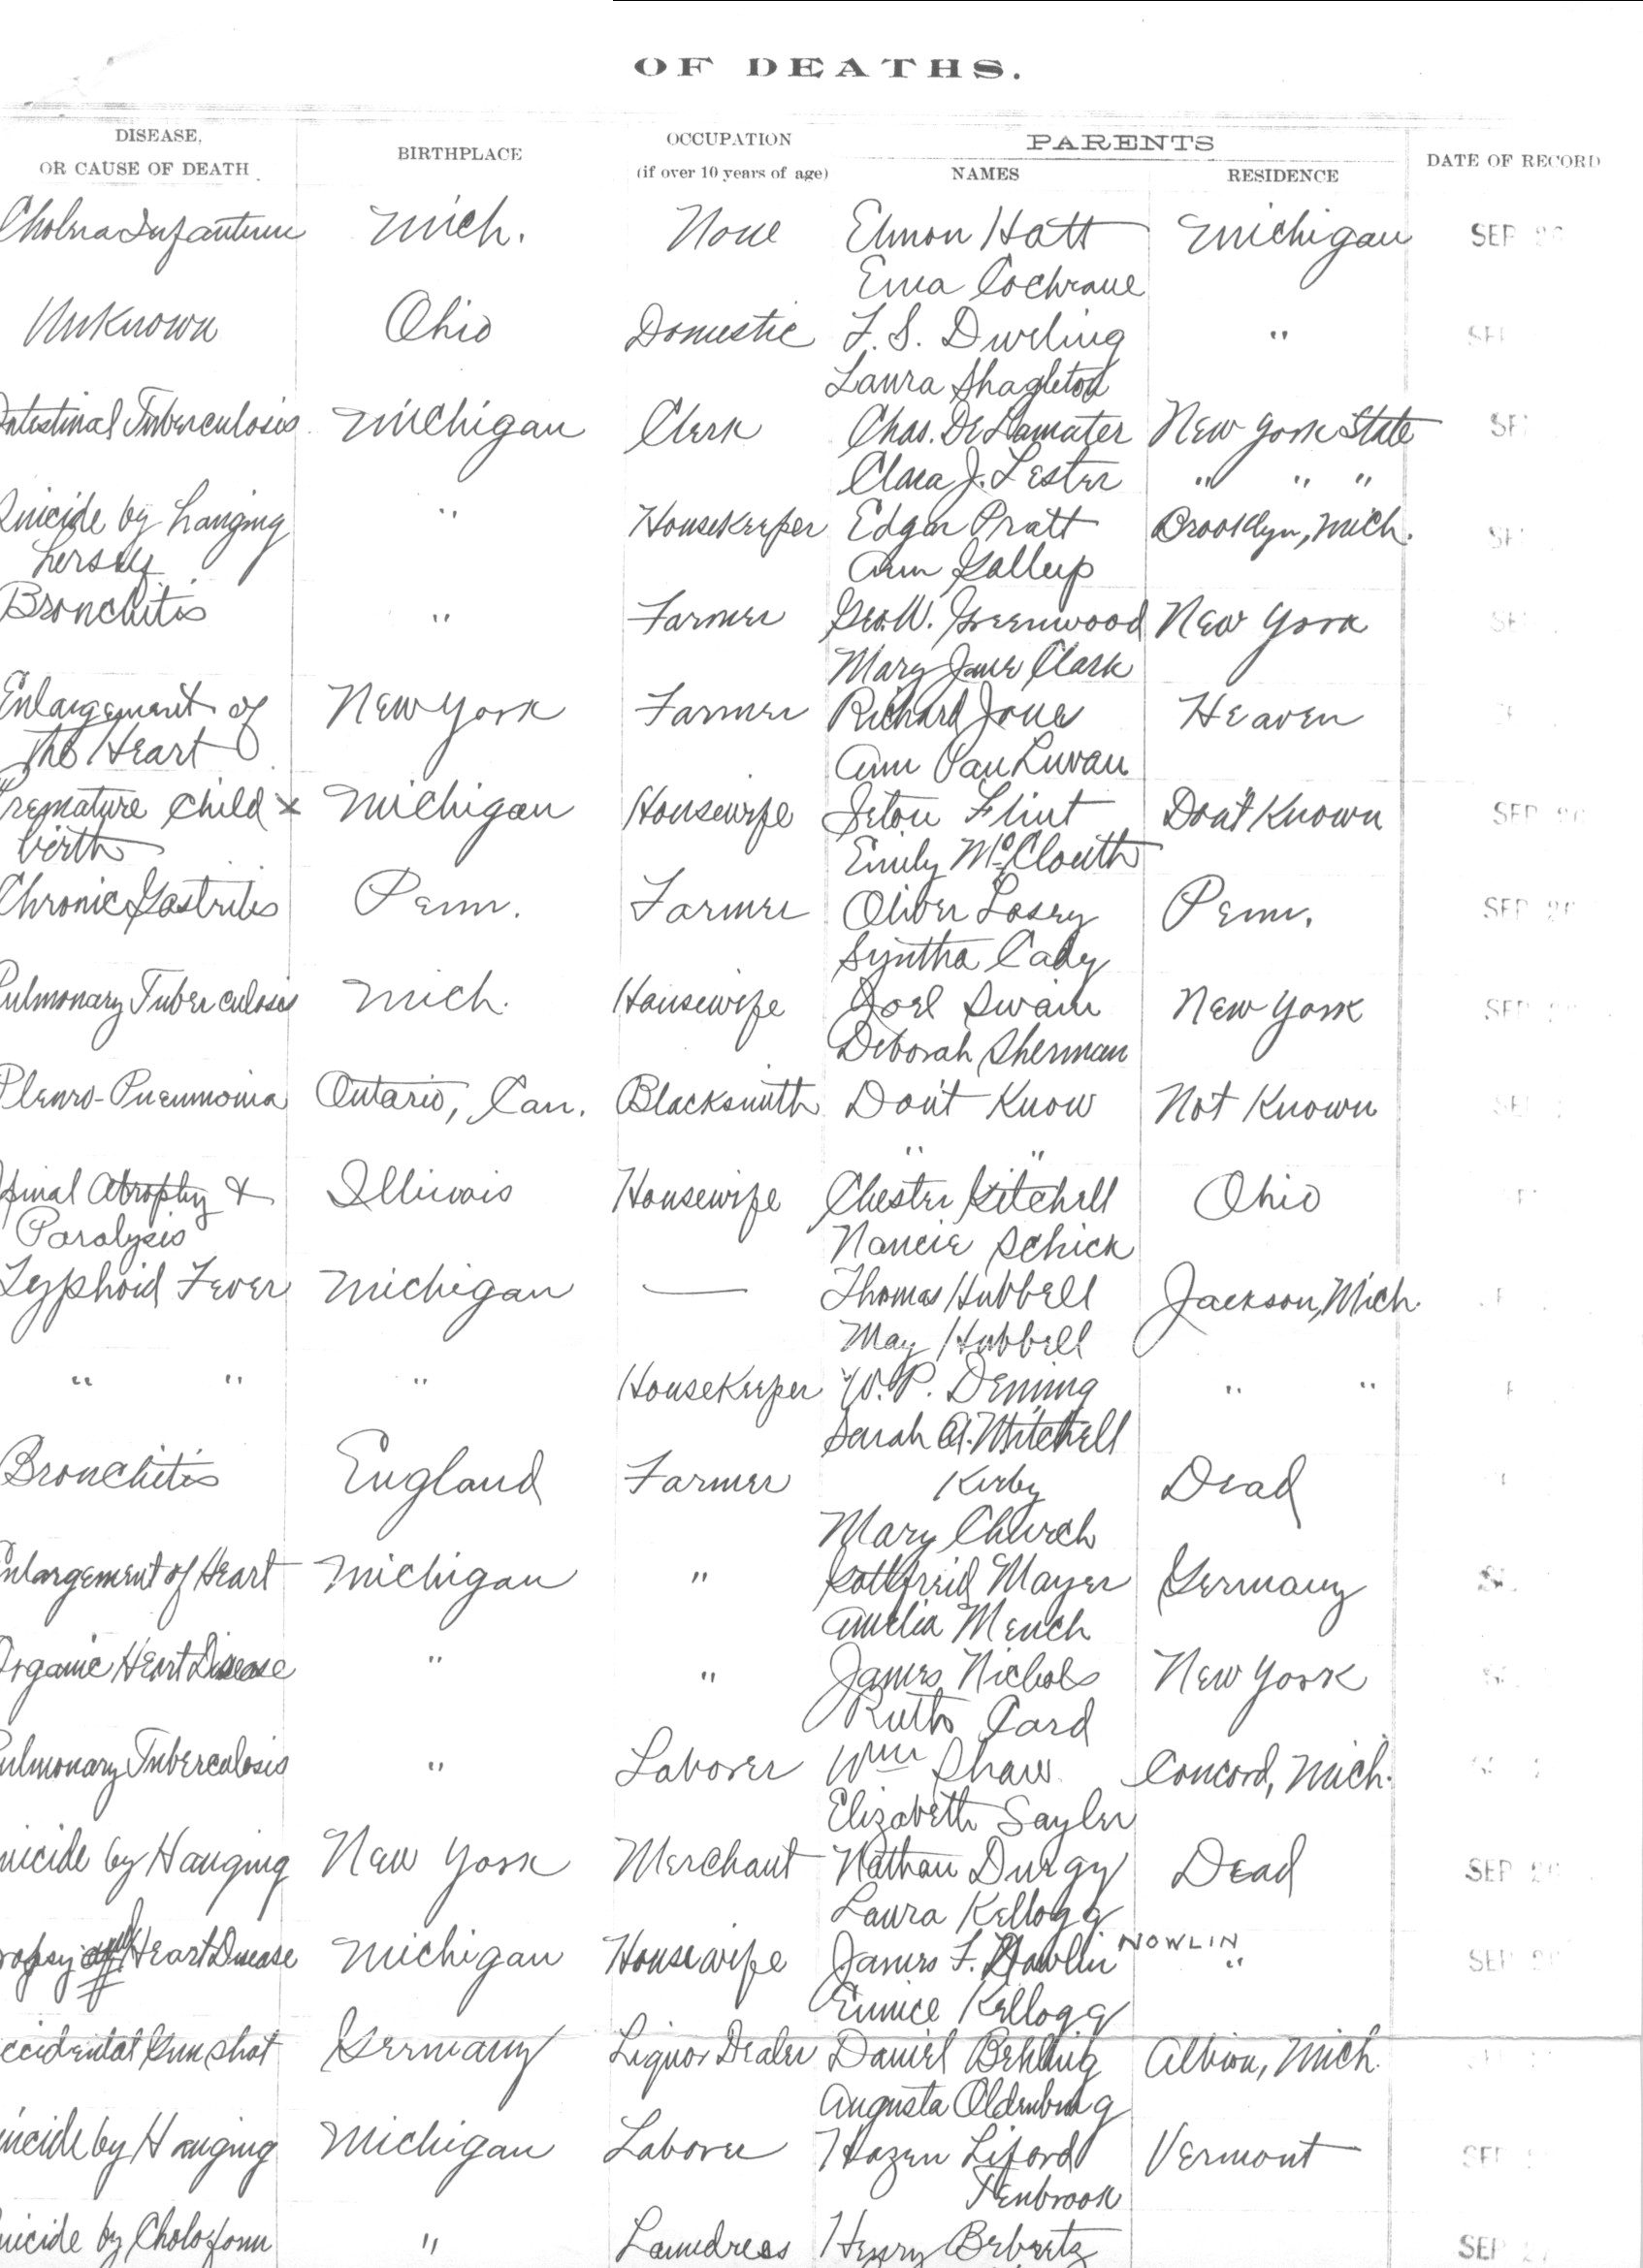 OF DEATHS.
DISEASE, OCCUPATION PARENTS
OR CAUSE OF DEATH BIRTHPLACE (if over 10 years of age) NAMES RESIDENCE DATE OF RECORD
Cholera Infantum Mich. None Elmon Hatt Michigan SEP 26
Ema Cochrane
Unknown Ohio Domestic F. S. Durling "
Laura Shagleton
Intestinal Tuberculosis Michigan Clerk Chas. DeLamater New York State
Clara J. Lester " " "
Suicide by hanging " Housekeeper Edgar Pratt Brooklyn, Mich.
herself Ann Gallup
Bronchitis " Farmer Geo. W. Greenwood New York
Mary Jane Clark
Enlargement of New York Farmer Richard Jones Heaven
The Heart Ann
Premature Child x Michigan Housewife Seton Flint Don't Known SEP
birth Emily McClouth
Chronic Gastritis Penn. Farmer Oliver Losey Penn. SEP
Syntha Cady
Pulmonary Tuberculosis Mich. Housewife Joel Swain New York SEP
Deborah Sherman
Pleuro-Pneumonia Ontario, Can. Blacksmith Don't Know Not Known
" "
Spinal Atrophy & Illinois Housewife Chester Kitchell Ohio
Paralysis Nancie Schick
Typhoid Fever Michigan — Thomas Hubbell Jackson, Mich.
May Hubbell
" " " Housekeeper W. P. Deming " "
Sarah A. Mitchell
Bronchitis England Farmer Kirby Dead
Mary Church
Enlargement of Heart Michigan " Gottfreid Mayer Germany
Amelia Mench
Organic Heart Disease " " James Nichols New York
Ruth Card
Pulmonary Tuberculosis " Laborer Wm Shaw Concord, Mich.
Elizabeth Sayler
uicide by Hanging New York Merchant Nathan Durgy Dead SEP
Laura Kellogg
ropsy and Heart Disease Michigan Housewife James F. Nowlin NOWLIN " SEP
Eunice Kellogg
ccidental Gun shot Germany Liquor Dealer Daniel Behling Albion, Mich.
Augusta Oldenburg
uicide by Hanging Michigan Laborer Hazen Liford Vermont
Tenbrook
uicide by Choloform " Laundress Henry Bebertz SEP